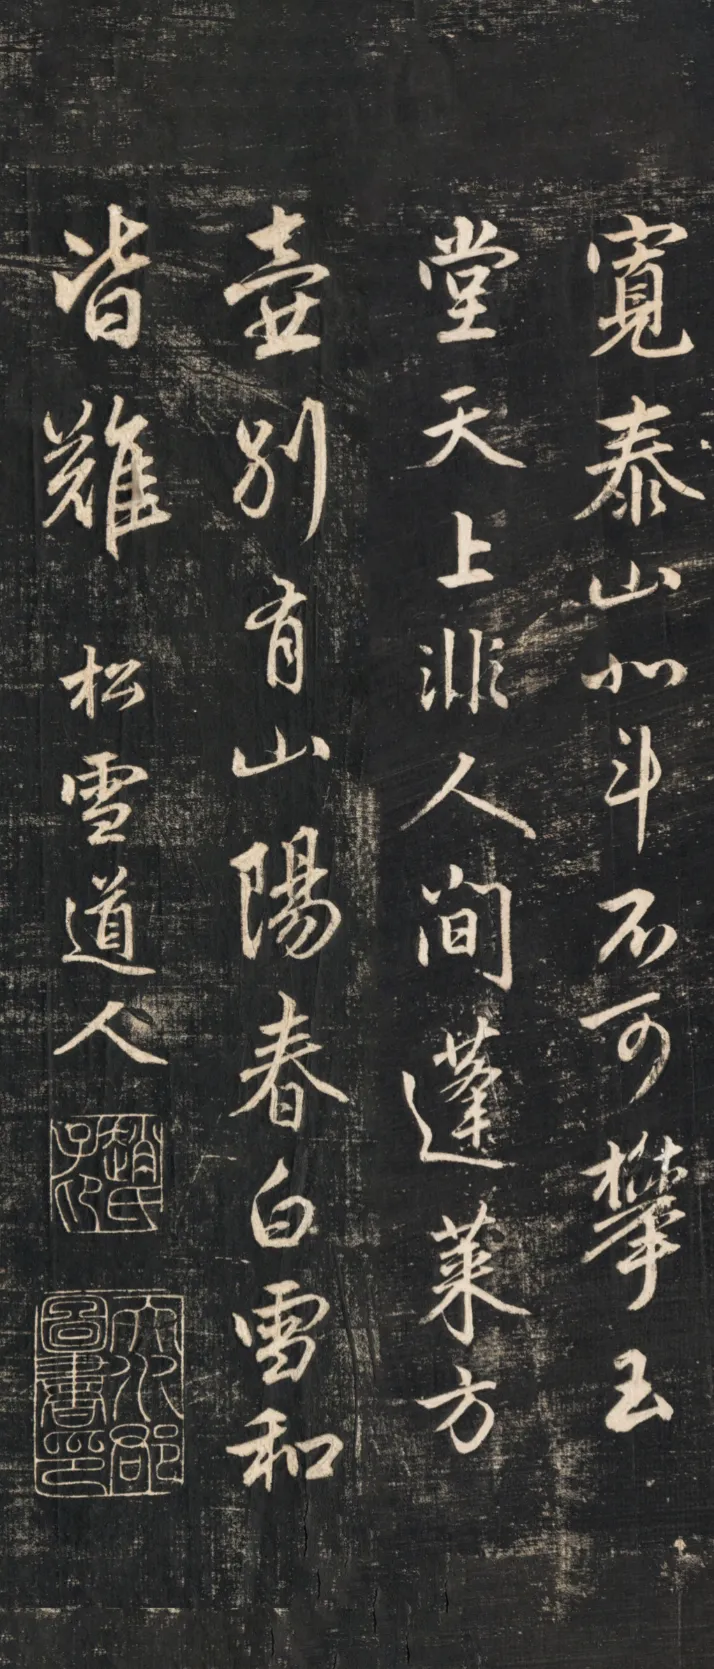 寬泰山北斗不可攀玉
堂天上非人間蓬萊方
壺別有山陽春白雪和
皆難 松雪道人
趙氏子印
大雅